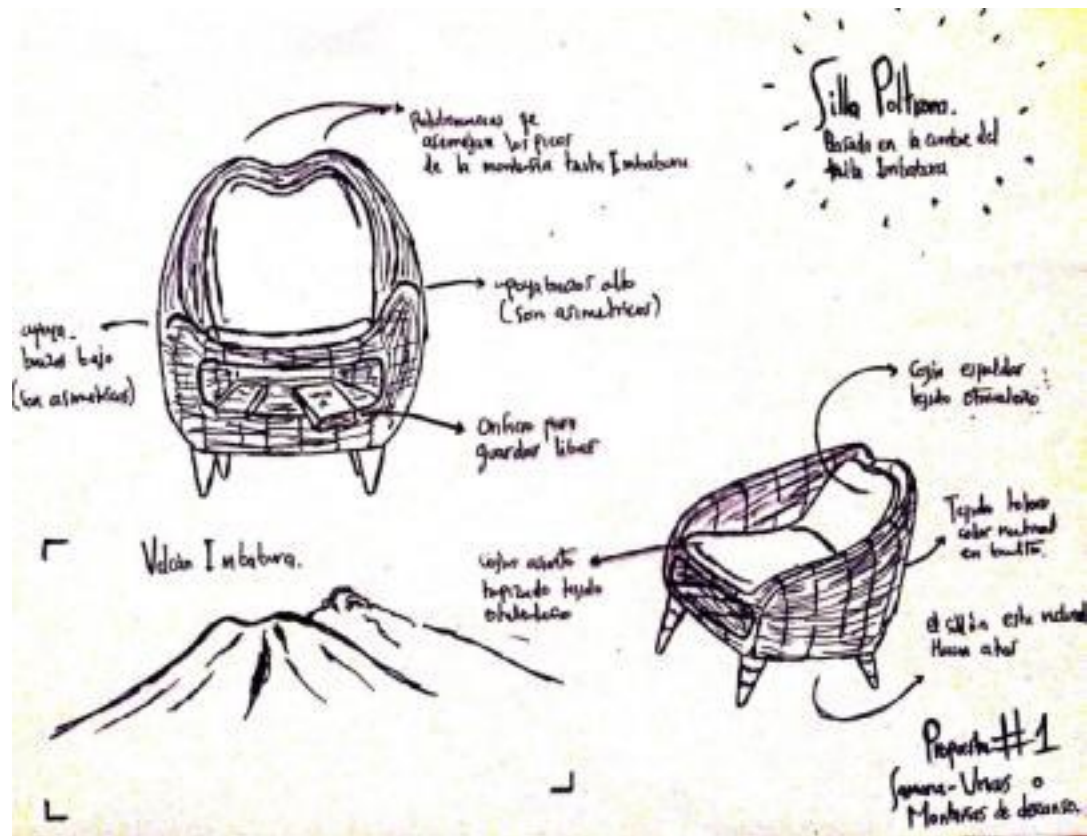 Silla Poltrona.
Basado en la cumbre del
taita Imbabura
que
asemejan los picos
de la montaña taita Imbabura
apoyabrazos alto
(son asimetricos)
apoya-
brazos bajo
(son asimetricos)
Orificio para
guardar libros
Cojín espaldar
tejido otavaleño
Tejido totora
color natural
en bruto.
cojín asiento
tapizado tejido
otavaleño
el sillón esta
Hacia atras
Volcán Imbabura.
Propuesta #1
Samana-Urkus o
Montañas de descanso.